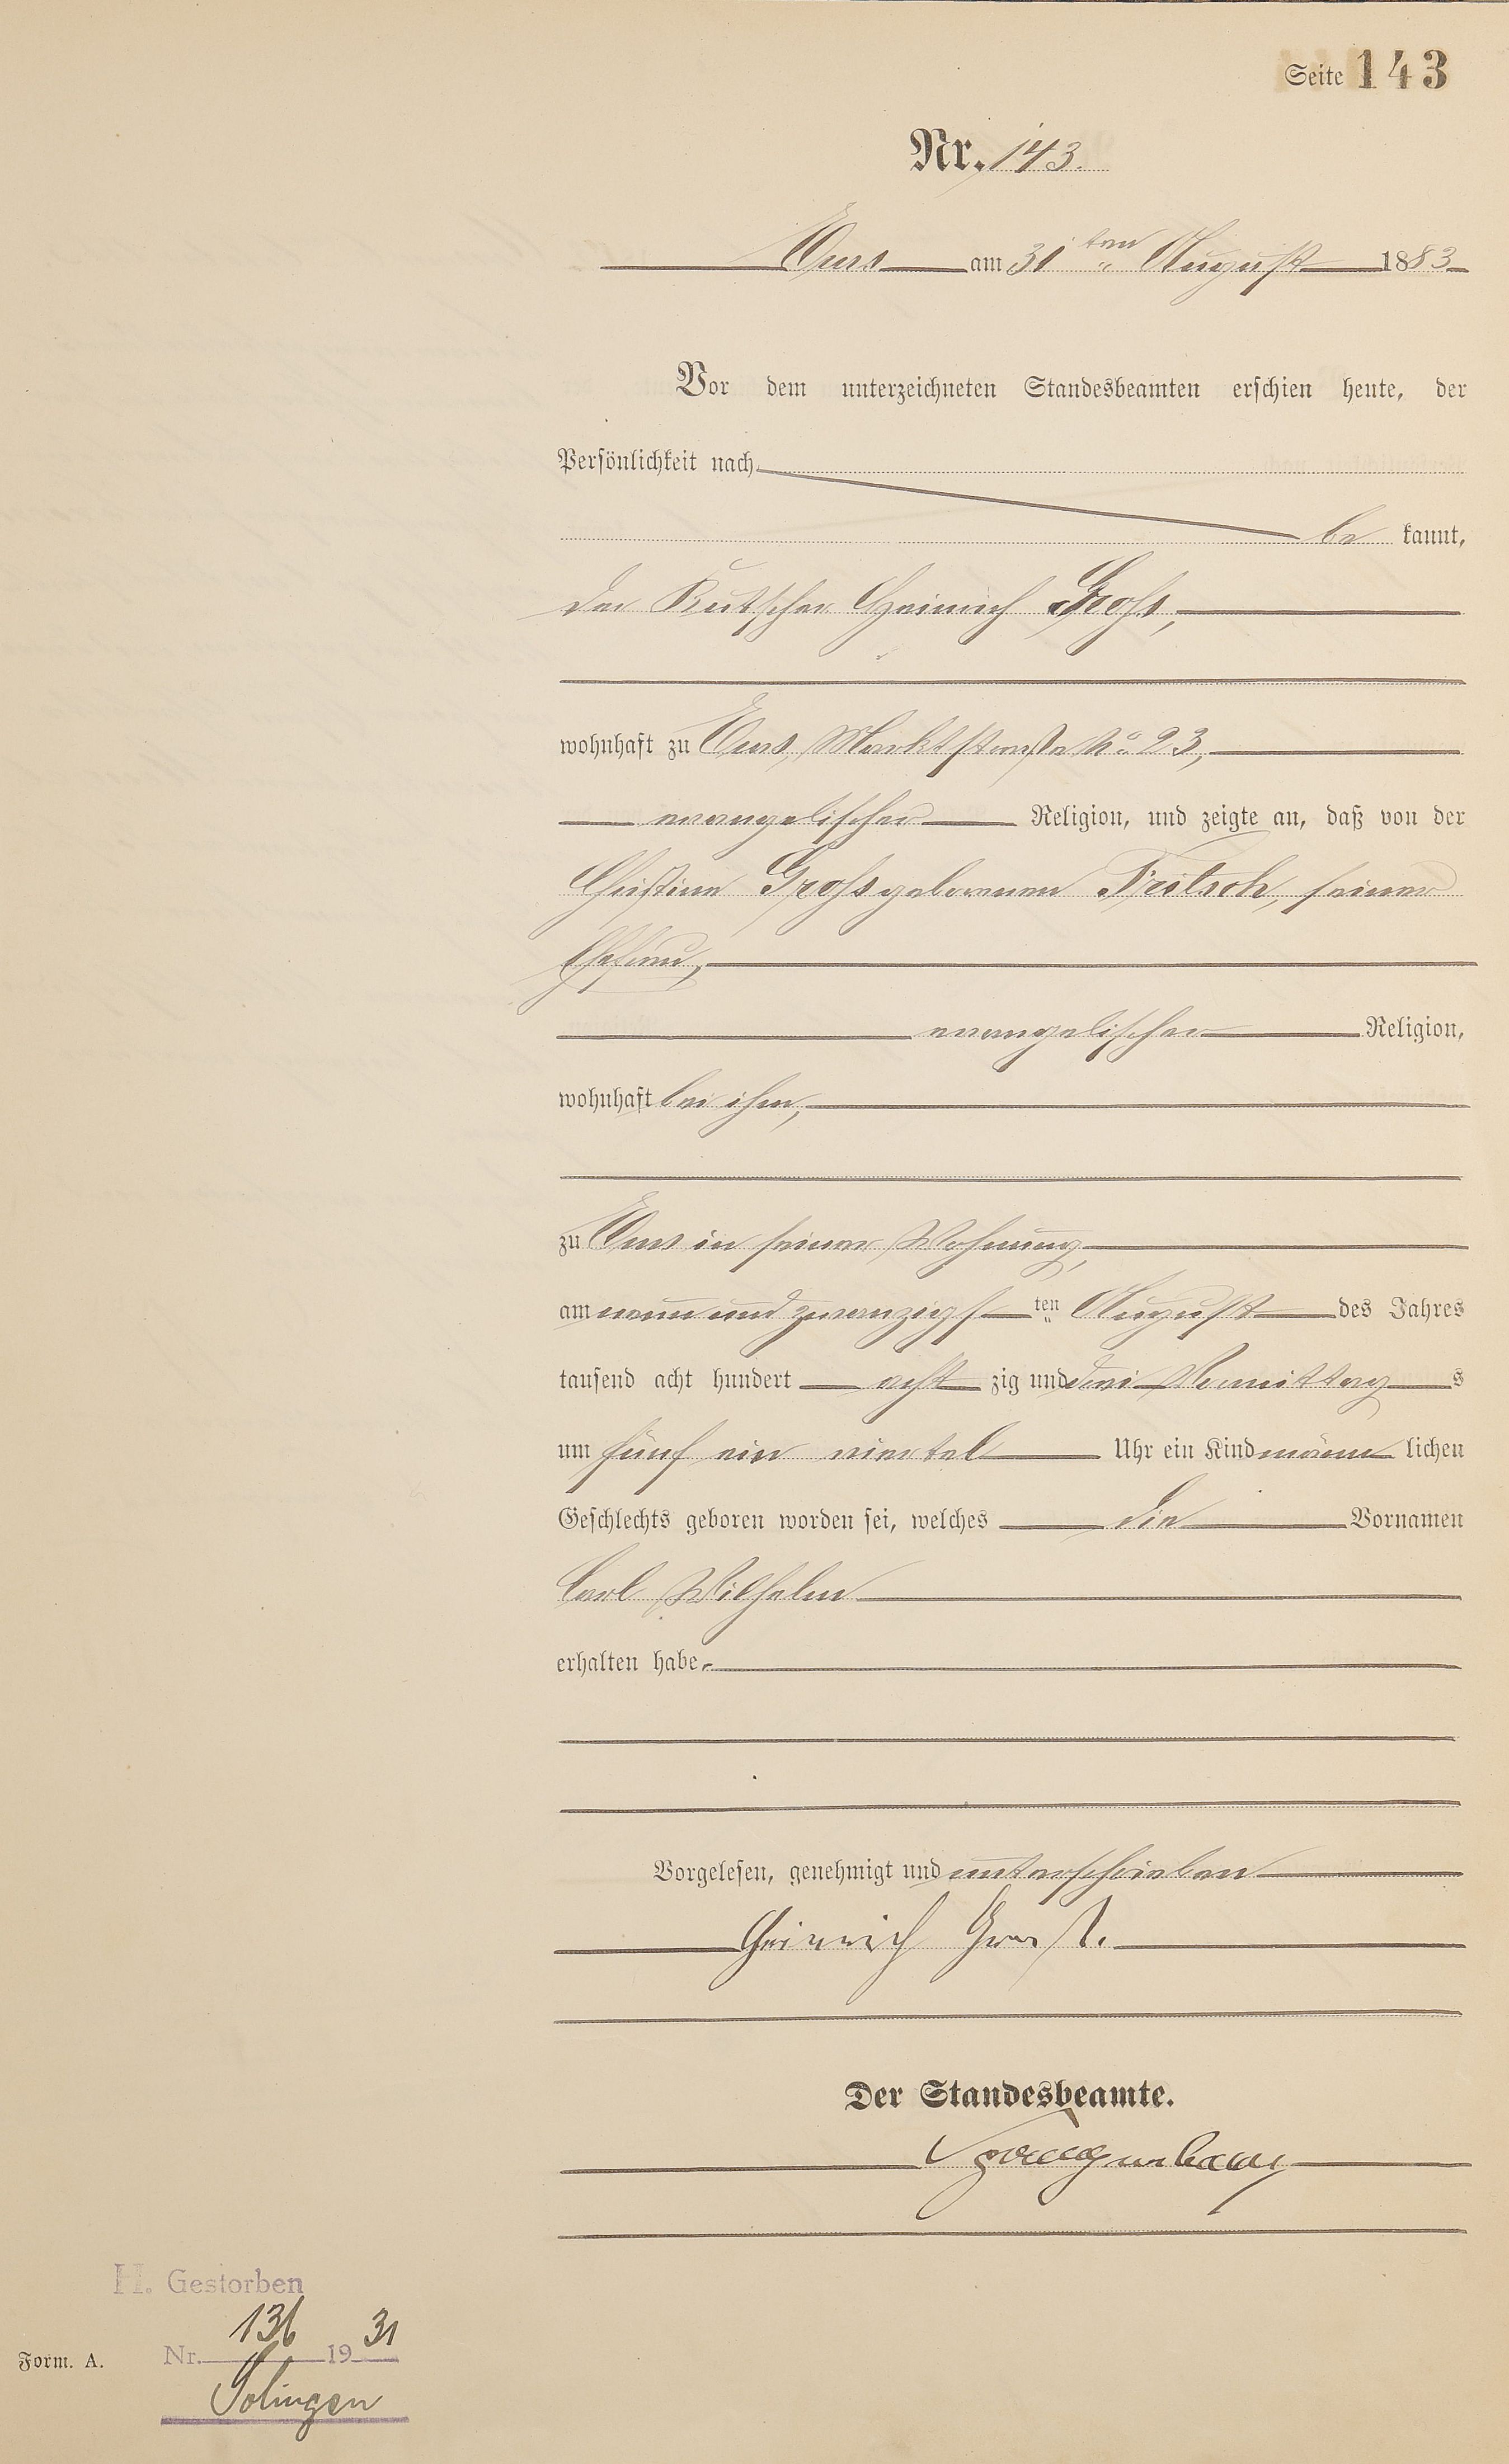 Seite 143
Nr. 143.
Ems am 31ten August 1883
Vor dem unterzeichneten Standesbeamten erschien heute, der
Persönlichkeit nach
be kannt,
der Kutscher Heinrich Groß,
wohnhaft zu Ems, Marktstraße No 23,
evangelischer Religion, und zeigte an, daß von der
Christine Groß geborenen Fritsch, seiner
Ehefrau,
evangelischer Religion,
wohnhaft bei ihm,
zu Ems in seiner Wohnung,
am neun und zwanzigsten August des Jahres
tausend acht hundert acht zig und drei Vormittags
um fünf ein viertel Uhr ein Kind männ lichen
Geschlechts geboren worden sei, welches die Vornamen
Carl Wilhelm
erhalten habe.
Vorgelesen, genehmigt und unterschrieben
Heinrich Groß.
Der Standesbeamte.
H. Gestorben
Nr. 136 1931
Form. A.
Solingen